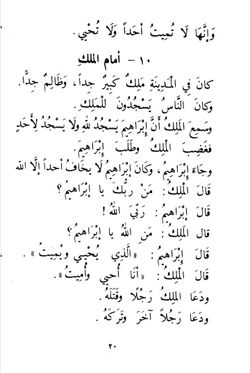 وَإِنَّهَا لَا تُمِيتُ أَحَداً وَلَا تُحْيِي.
١٠ - أمام الملك
كانَ فِي الْمَدِينَةِ مَلِكٌ كَبِيرٌ جِداً، وَظَالِمٌ جِدًّا.
وَكانَ النَّاسُ يَسْجُدُونَ لِلْمَلِكِ.
وَسَمِعَ المَلِكُ أَنَّ إِبْرَاهِيمَ يَسْجُدُ للهِ وَلَا يَسْجُدُ لِأَحَدٍ
فَغَضِبَ المَلِكُ وَطَلَبَ إِبْرَاهِيمَ.
وَجَاءَ إِبْرَاهِيمُ، وَكانَ إِبْرَاهِيمُ لَا يَخَافُ أَحداً إلَّا الله
قَالَ المَلِكُ: مَنْ رَبُّكَ يا إبْرَاهِيمُ؟
قَالَ إبْرَاهِيمُ: رَبِّيَ اللهُ!
قَالَ المَلِكُ: مَنِ اللهُ يا إبْرَاهِيمُ؟
قَالَ إِبْرَاهِيمُ: «الَّذِي يُحْيِي وَيُمِيتُ».
قَالَ المَلِكُ: «أنَا أُحيِي وَأُمِيتُ».
وَدَعَا المَلِكُ رَجُلًا وَقَتَلَهُ.
وَدَعَا رَجُلًا آخَرَ وَتَرَكَهُ.
٢٠